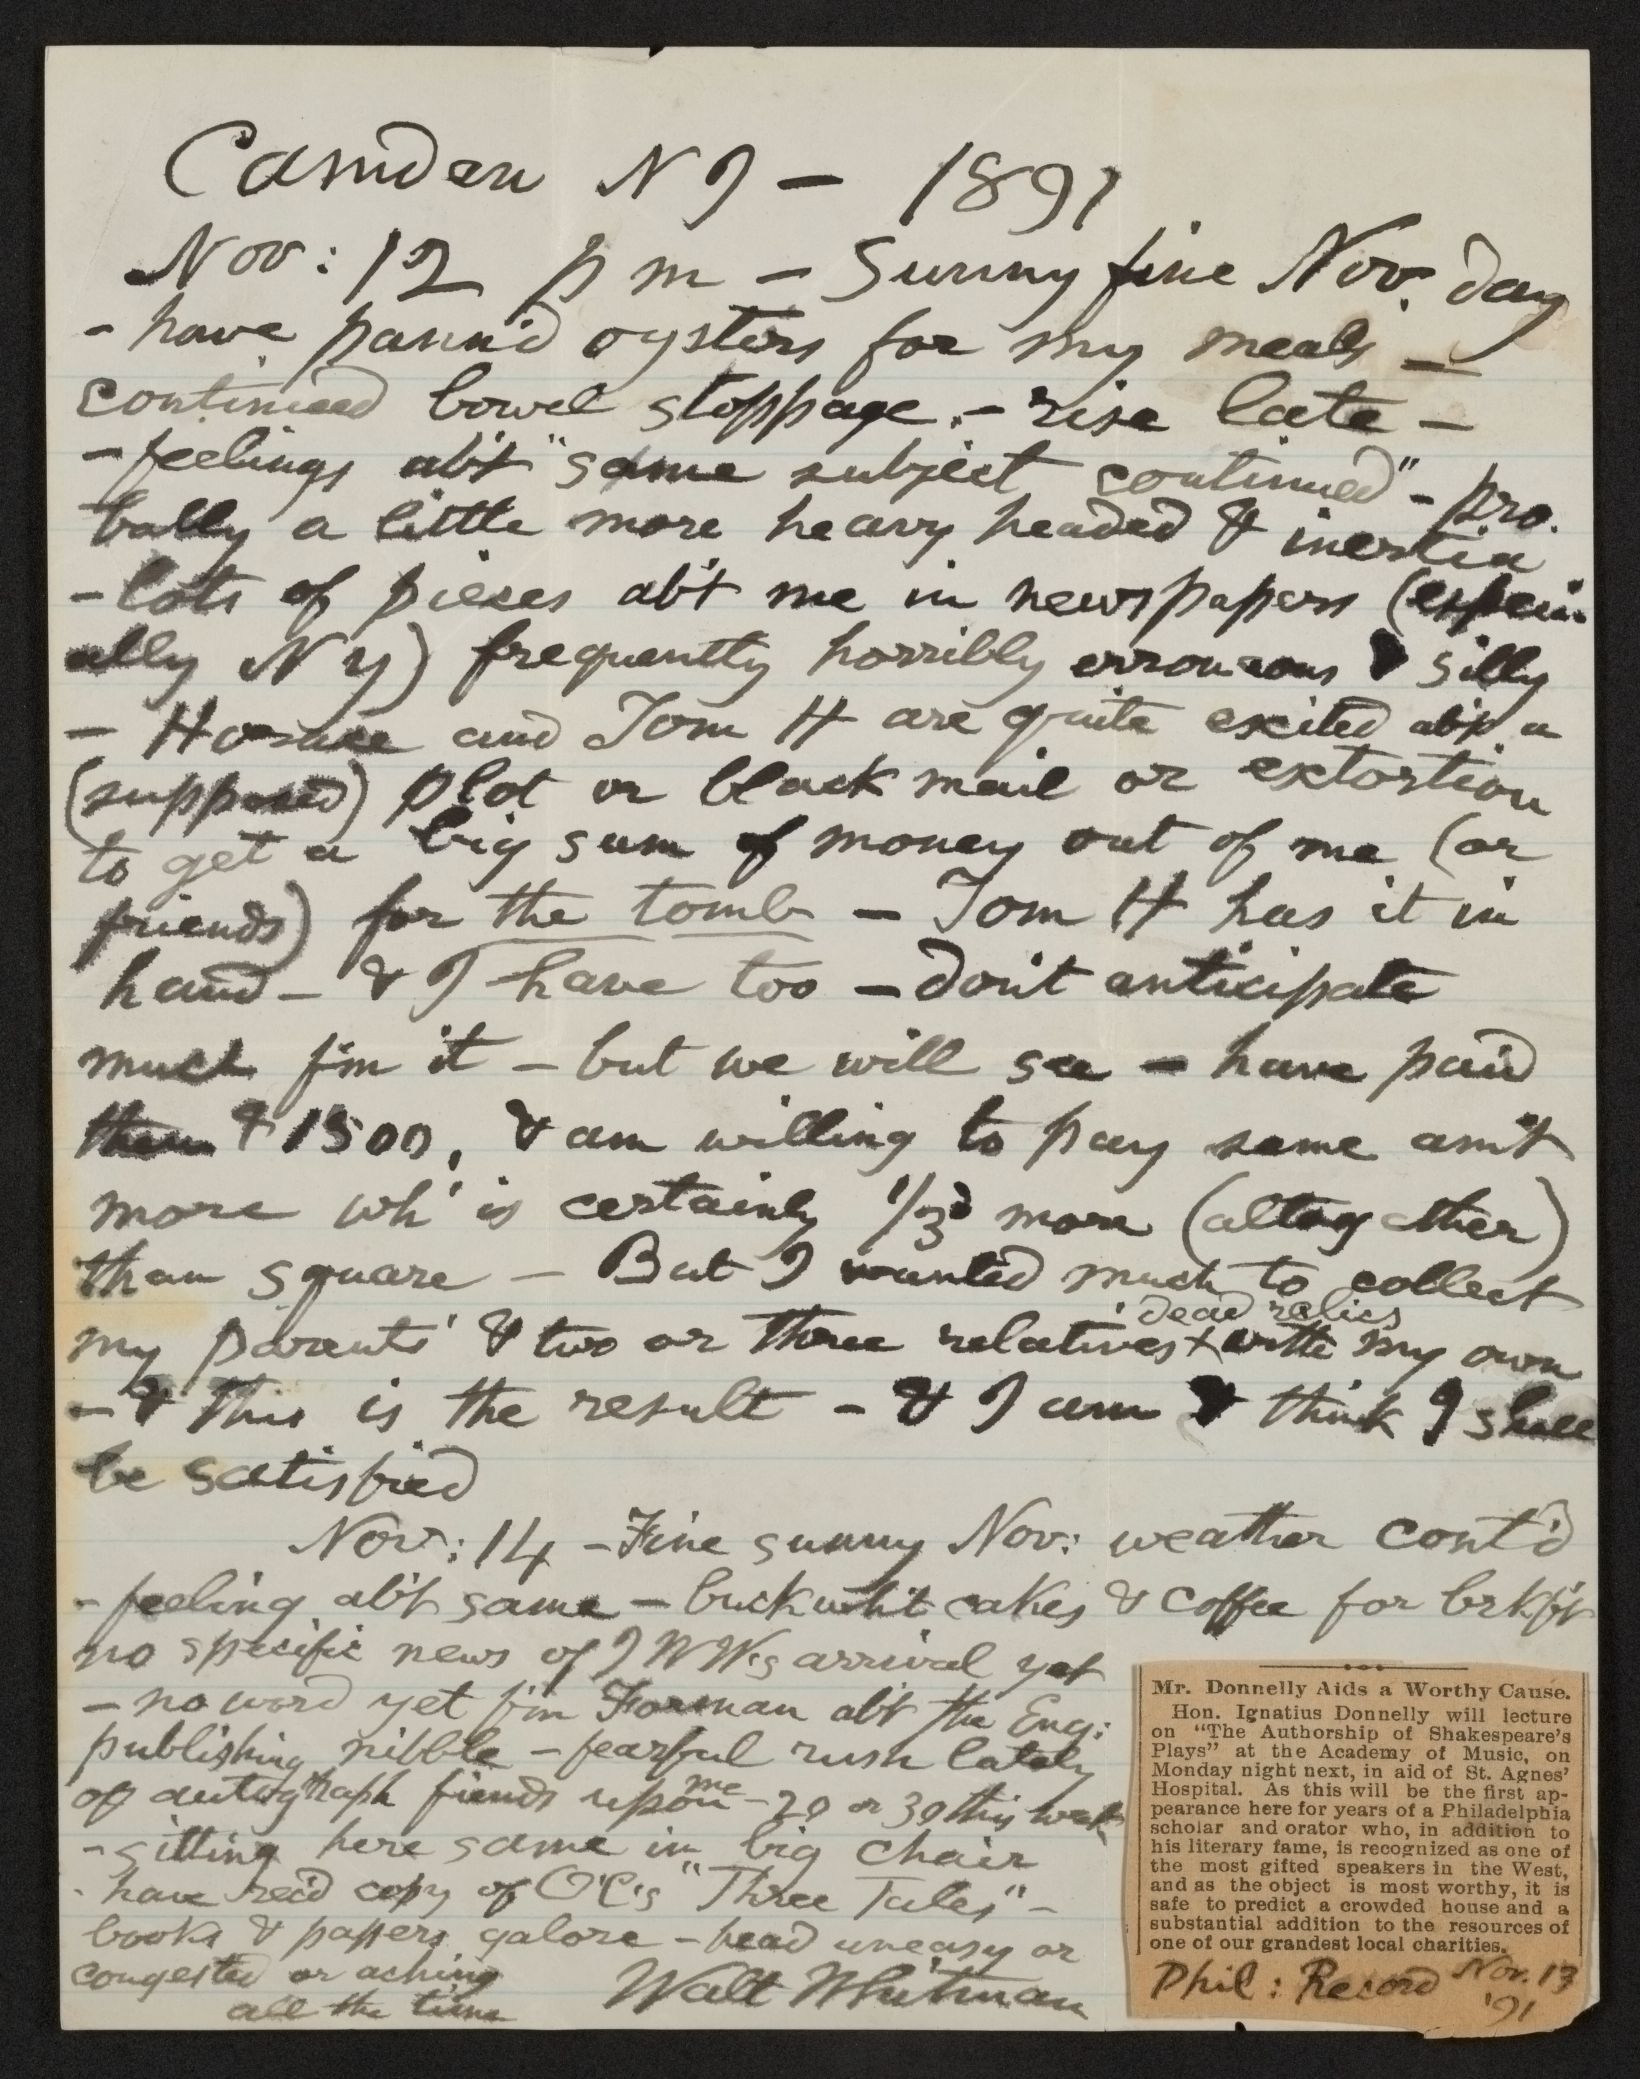 Camden N J — 1891
Nov: 12 p m — Sunny fine Nov. day
— have pann'd oysters for my meals —
continued bowel stoppage. — rise late —
— feelings ab't "same subject continued" — pro.
bably a little more heavy headed & inertia
— lots of pieces ab't me in newspapers (espec-
ially N Y) frequently horribly erroneous & silly
— Horace and Tom H are quite excited ab't a
(supposed) plot or blackmail or extortion
to get a big sum of money out of me (or
friends) for the tomb — Tom H has it in
hand — & I have too — don't anticipate
much f'm it — but we will see — have paid
them $1500, & am willing to pay same am't
more wh' is certainly 1/3d more (altogether)
than square — But I wanted much to collect
dead relics
my parents' & two or three relatives' + with my own
— & this is the result — & I am & think I shall
be satisfied
Nov: 14 — Fine sunny Nov: weather cont'd
— feeling ab't same — buckwh't cakes & coffee for brkf't
no specific news of J W W's arrival yet
— no word yet f'm Forman ab't the Eng:
publishing nibble — fearful rush lately
me
of autograph fiends upon — 20 or 30 this week
— sitting here same in big chair
— have rec'd copy of O'C's "Three Tales" —
books & papers galore — head uneasy or
congested or aching
all the time
Walt Whitman
Mr. Donnelly Aids a Worthy Cause.
Hon. Ignatius Donnelly will lecture
on "The Authorship of Shakespeare's
Plays" at the Academy of Music, on
Monday night next, in aid of St. Agnes'
Hospital. As this will be the first ap-
pearance here for years of a Philadelphia
scholar and orator who, in addition to
his literary fame, is recognized as one of
the most gifted speakers in the West,
and as the object is most worthy, it is
safe to predict a crowded house and a
substantial addition to the resources of
one of our grandest local charities.
Phil: Record Nov. 13
'91